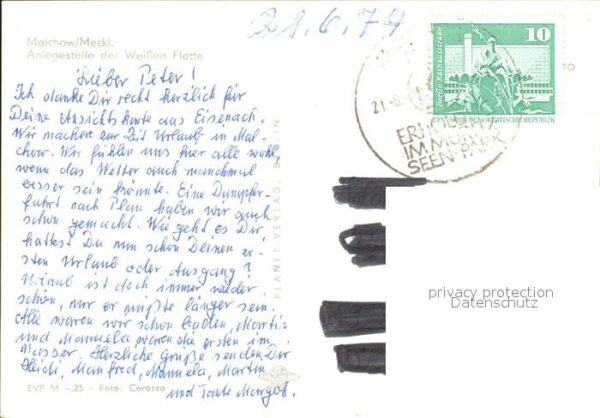 28.6.74
Malchow/Meckl.
Anlegestelle der Weißen Flotte
Lieber Peter!
Ich danke Dir recht herzlich für
Deine Ansichtskarte aus Eisenach.
Wir machen zur Zeit Urlaub in Mal-
chow. Wir fühlen uns hier alle wohl,
wenn das Wetter auch manchmal
besser sein könnte. Eine Dampfer-
fahrt nach Plau haben wir auch
schon gemacht. Wie geht es Dir
hattest Du nun schon Deinen er-
sten Urlaub oder Ausgang?
Urlaub ist doch immer wieder
schön, nur er müßte länger sein.
Alle waren wir schon baden, Martin
und Manuela waren die ersten im
Wasser. Herzliche Grüße senden Dir
Heidi, Manfred, Manuela, Martin
und Tante Margot.
EVP M –,25 - Foto: Corazza
PLANET-VERLAG, BERLIN
10
Berlin, Rathausstraße
DEUTSCHE DEMOKRATISCHE REPUBLIK
21.6
IM MÜR
SEEN-PARK
TO
privacy protection
Datenschutz